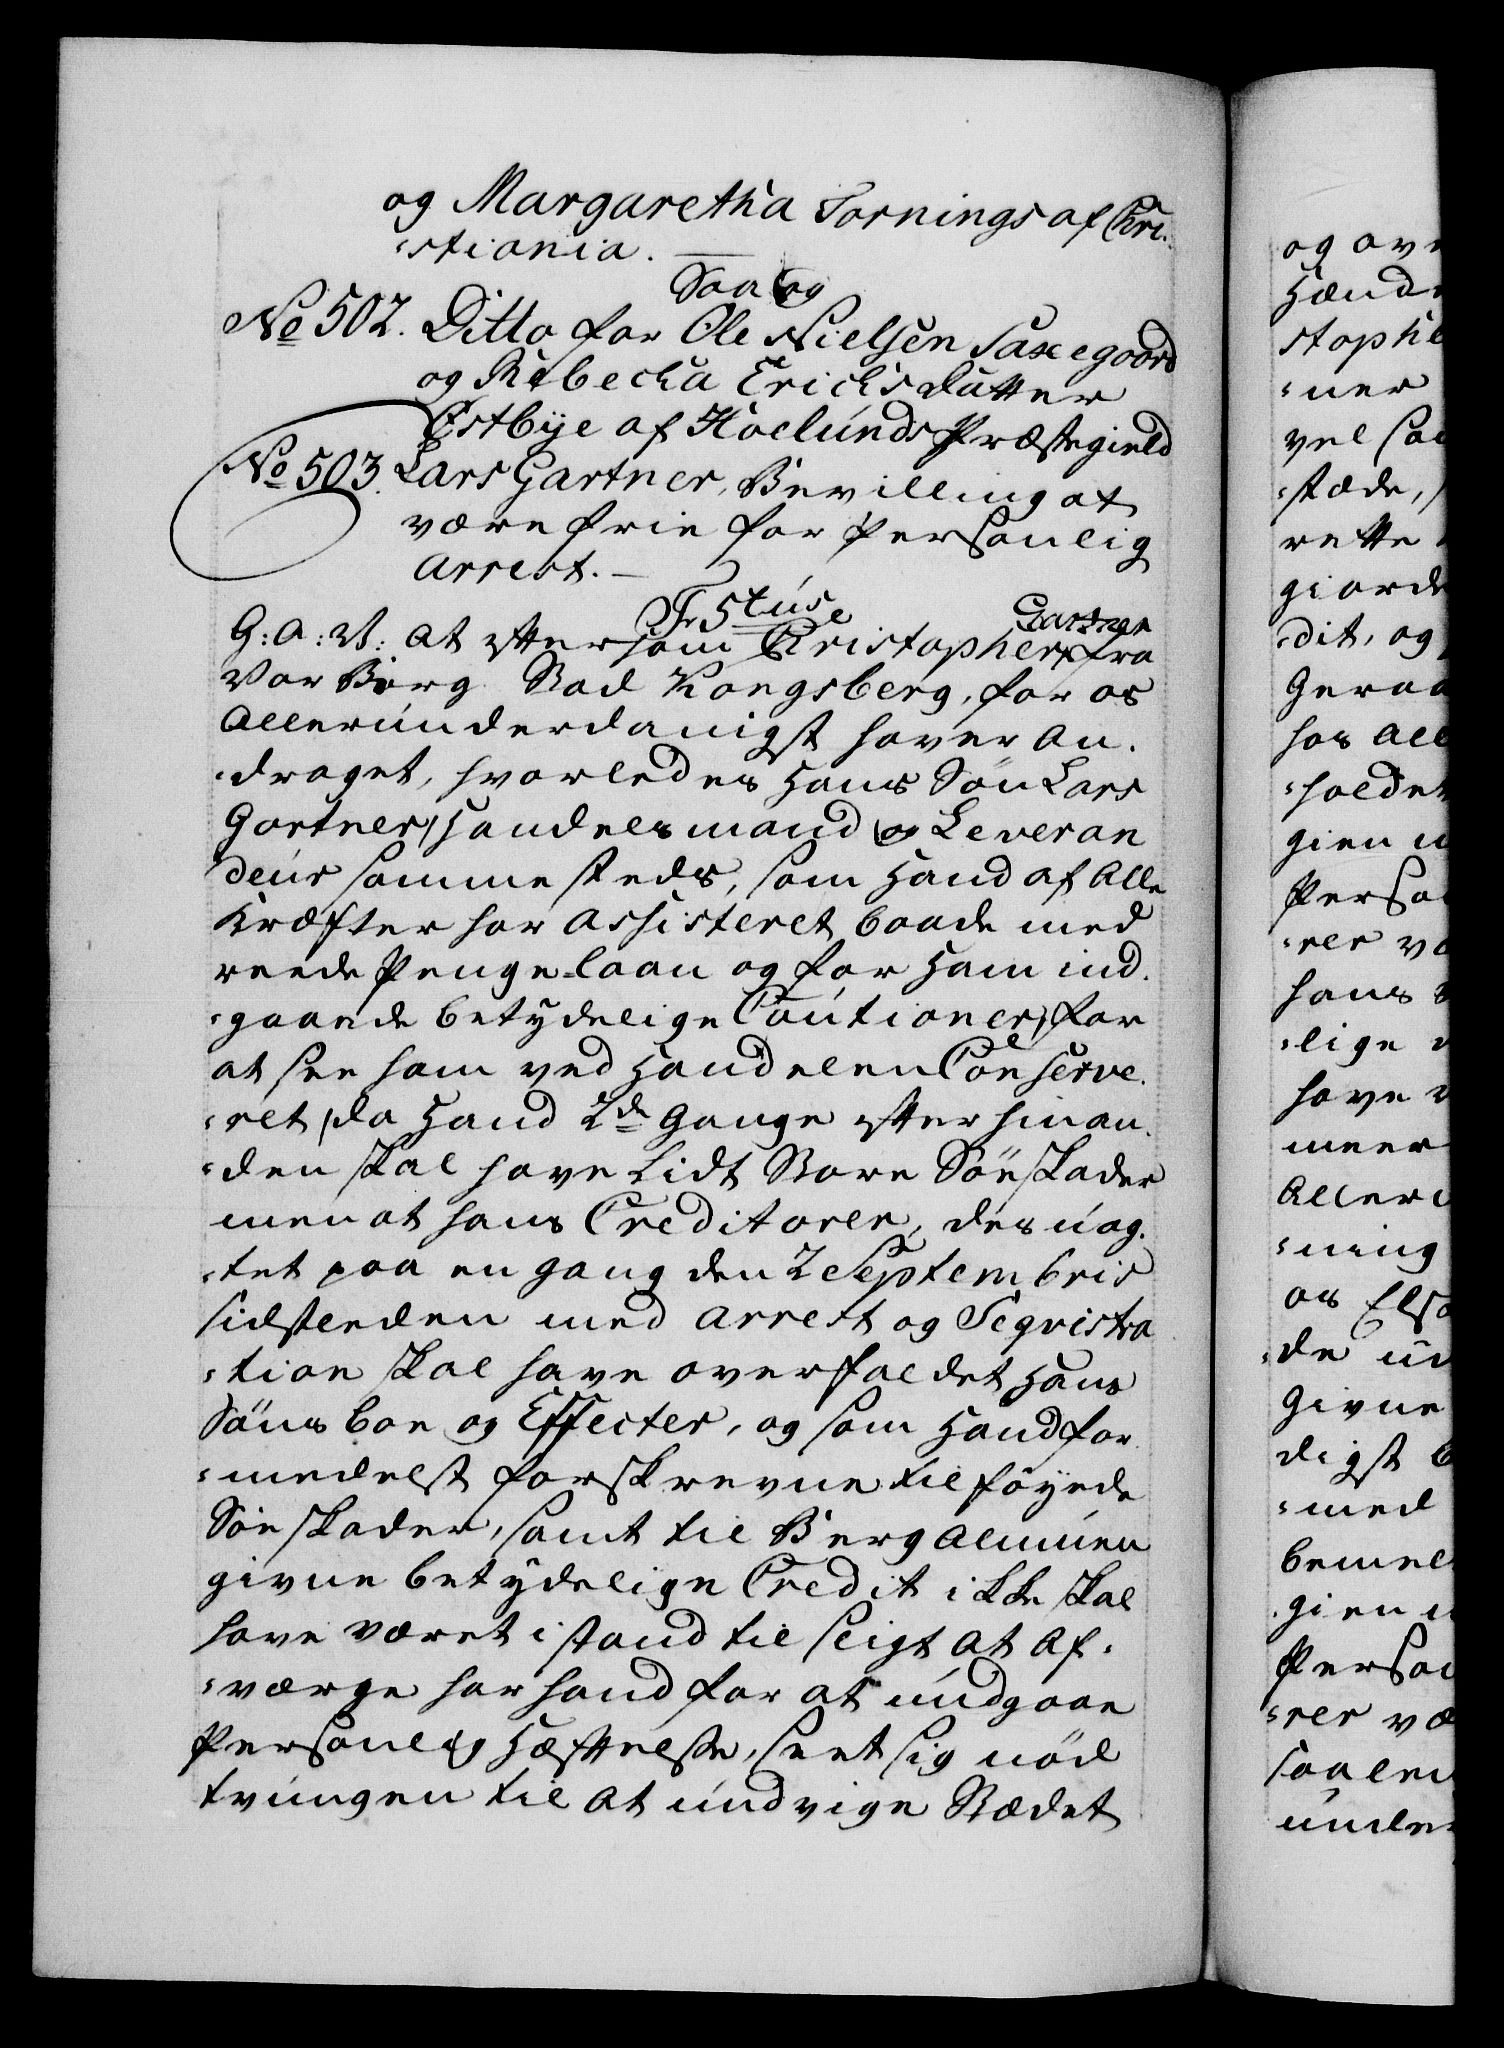 og Margaretha Tornings af Chri-
-stiania.
Saa og
No 502. Ditto for Ole Nielsen Saxegaard
og Rebecka Erichsdatter
Østbÿe af Høelunds Præstegield
No 503. Lars Gartner, Bevilling at
være frie for Personlig
Arrest. —
Fr 5tus
G: A: V: at eftersom Christopher Gartner fra
Vor Berg Stad Kongsberg, for os
Allerunderdanigst haver an-
-draget, hvorledes Hans Søn Lars
Gartner, Handelsmand og Leveran
deur sammesteds, som Hand af Alle
Kræfter har assisteret baade med
reede Penge-laan og for Ham ind-
-gaaede betydelige Cautioner, for
at see ham ved Handelen Conserve-
-ret, da Hand 2de Gange efter hinan-
-den skal have Lidt Store Søe skader
men at hans Creditorer, des uag-
-tet paa en gang den 2 Septembris
sidstleeden med Arrest og Seqvistra
-tion skal have overfaldet Hans
Søns boe og Effecter, og som Hand for-
-medelst forskrevne tilføyede
Søe skader, samt til Berg Almuen
givne betydelige Credit ikke skal
have været i stand til sligt at af-
-værge har hand for at undgaae
Personlig Hæftelse, seet sig nød
tvungen til at undvige Stædet
og ove
Hænd
stophe
-ner
vel saa
-stæde,
rette
giorde
-dit, og
Geraa
hos All
-holdet
gien
Perso
-rer væ
hans
-lige
have
meer
Aller
-ning
os
-de ud
Givne
digst
-med
bemel
-gien
Person
-rer væ
saaled
under